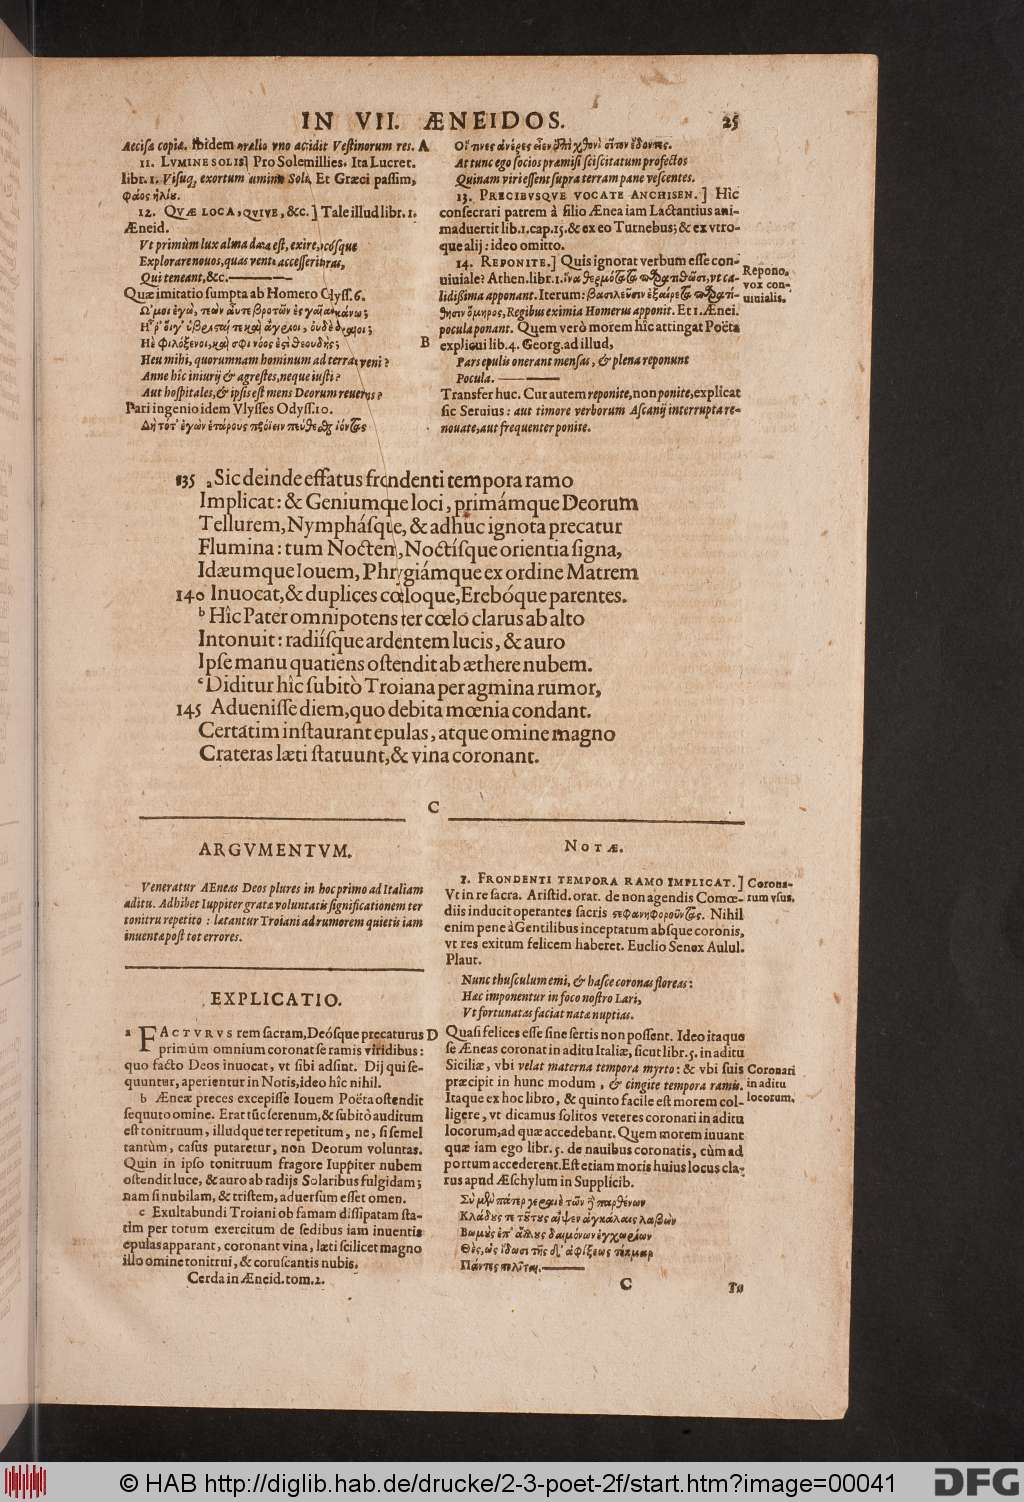 IN VII. ÆNEIDOS.
25
Accisa copiæ. Ibidem prælio vno accidit Vestinorum res.
11. LVMINE SOLIS] Pro Solemillies. Ita Lucret.
libr. 1. Visuq́, exortum lumine Solis. Et Græci passim,
φάος ἠλίου.
12. QVÆ LOCA, QVIVE, &c.] Tale illud libr. 1.
Æneid.
Vt primùm lux alma data est, exire, locósque
Explorare nouos, quas vento accesserit oras,
Qui teneant, &c.
Quæ imitatio sumpta ab Homero Odyss. 6.
Ὤμοι ἐγὼ, τέων αὖτε βροτῶν ἐς γαῖαν ἱκάνω;
Ἤ ῥ' οἵγ' ὑβρισταί τε καὶ ἄγριοι, οὐδὲ δίκαιοι;
Ἠὲ φιλόξενοι, καί σφι νόος ἐστὶ θεουδής;
Heu mihi, quorumnam hominum ad terram veni?
Anne hîc iniurij & agrestes, neque iusti?
Aut hospitales, & ipsis est mens Deorum reuerens?
Pari ingenio idem Vlysses Odyss. 10.
Δὴ τότ' ἐγὼν ἑτάρους προΐειν πεύθεσθαι ἰόντας
A
Οἵ τινες ἀνέρες εἶεν ἐπὶ χθονὶ σῖτον ἔδοντες.
At tunc ego socios præmisi sciscitatum profectos
Quinam viri essent supra terram pane vescentes.
13. PRECIBVSQVE VOCATE ANCHISEN.] Hîc
consecrari patrem à filio Ænea iam Lactantius ani-
maduertit lib. 1. cap. 15. & ex eo Turnebus; & ex vtro-
que alij: ideo omitto.
14. REPONITE.] Quis ignorat verbum esse con-
uiuiale? Athen. libr. 1. ἵνα θερμότατα παρατιθῶσι, vt ca-
lidißima apponant. Iterum: βασιλεῦσιν ἐξαίρετα παρατί-
θησιν ὅμηρος, Regibus eximia Homerus apponit. Et 1. Ænei.
pocula ponant. Quem verò morem hîc attingat Poëta
B
explicui lib. 4. Georg. ad illud,
Pars epulis onerant mensas, & plena reponunt
Pocula.
Transfer huc. Cur autem reponite, non ponite, explicat
sic Seruius: aut timore verborum Ascanij interrupta re-
nouate, aut frequenter ponite.
Repono,
vox con-
uiuialis.
135 a Sic deinde effatus frondenti tempora ramo
Implicat: & Geniumque loci, primámque Deorum
Tellurem, Nymphásque, & adhuc ignota precatur
Flumina: tum Noctem, Noctísque orientia signa,
Idæumque Iouem, Phrygiámque ex ordine Matrem
140 Inuocat, & duplices cœloque, Erebóque parentes.
b Hîc Pater omnipotens ter cœlo clarus ab alto
Intonuit: radiísque ardentem lucis, & auro
Ipse manu quatiens ostendit ab æthere nubem.
c Diditur hîc subitò Troiana per agmina rumor,
145 Aduenisse diem, quo debita mœnia condant.
Certatim instaurant epulas, atque omine magno
Crateras læti statuunt, & vina coronant.
C
ARGVMENTVM.
Veneratur AEneas Deos plures in hoc primo ad Italiam
aditu. Adhibet Iuppiter gratæ voluntatis significationem ter
tonitru repetito: lætantur Troiani ad rumorem quietis iam
inuentæ post tot errores.
EXPLICATIO.
a FACTVRVS rem sacram, Deósque precaturus
primùm omnium coronat se ramis viridibus:
quo facto Deos inuocat, vt sibi adsint. Dij qui se-
quuntur, aperientur in Notis, ideo hîc nihil.
b Æneæ preces excepisse Iouem Poëta ostendit
sequuto omine. Erat tũc serenum, & subitò auditum
est tonitruum, illudque ter repetitum, ne, si semel
tantùm, casus putaretur, non Deorum voluntas.
Quin in ipso tonitruum fragore Iuppiter nubem
ostendit luce, & auro ab radijs Solaribus fulgidam;
nam si nubilam, & tristem, aduersum esset omen.
c Exultabundi Troiani ob famam dissipatam sta-
tìm per totum exercitum de sedibus iam inuentis
epulas apparant, coronant vina, læti scilicet magno
illo omine tonitrui, & coruscantis nubis.
Cerda in Æneid. tom. 2.
NOTÆ.
1. FRONDENTI TEMPORA RAMO IMPLICAT.]
Vt in re sacra. Aristid. orat. de non agendis Comœ-
diis inducit operantes sacris στεφανηφοροῦντας. Nihil
enim pene à Gentilibus inceptatum absque coronis,
vt res exitum felicem haberet. Euclio Senex Aulul.
Plaut.
Nunc thusculum emi, & hasce coronas floreas:
Hæc imponentur in foco nostro Lari,
Vt fortunatas faciat natæ nuptias.
D
Quasi felices esse sine sertis non possent. Ideo itaque
se Æneas coronat in aditu Italiæ, sicut libr. 5. in aditu
Siciliæ, vbi velat materna tempora myrto: & vbi suis
præcipit in hunc modum, & cingite tempora ramis.
Itaque ex hoc libro, & quinto facile est morem col-
ligere, vt dicamus solitos veteres coronari in aditu
locorum, ad quæ accedebant. Quem morem iuuant
quæ iam ego libr. 5. de nauibus coronatis, cùm ad
portum accederent. Est etiam moris huius locus cla-
rus apud Æschylum in Supplicib.
Σὺ μὲν πάτερ γεραιὲ τῶνδε παρθένων
Κλάδους τε τούτους αἶψ' ἐν ἀγκάλαις λαβὼν
Βωμοὺς ἐπ' ἄλλους δαιμόνων ἐγχωρίων
Θὲς, ὡς ἴδωσι τῆσδ' ἀφίξεως τέκμαρ
Πάντες πολῖται.
Corona-
rum vsus.
Coronari
in aditu
locorum.
C
Tu